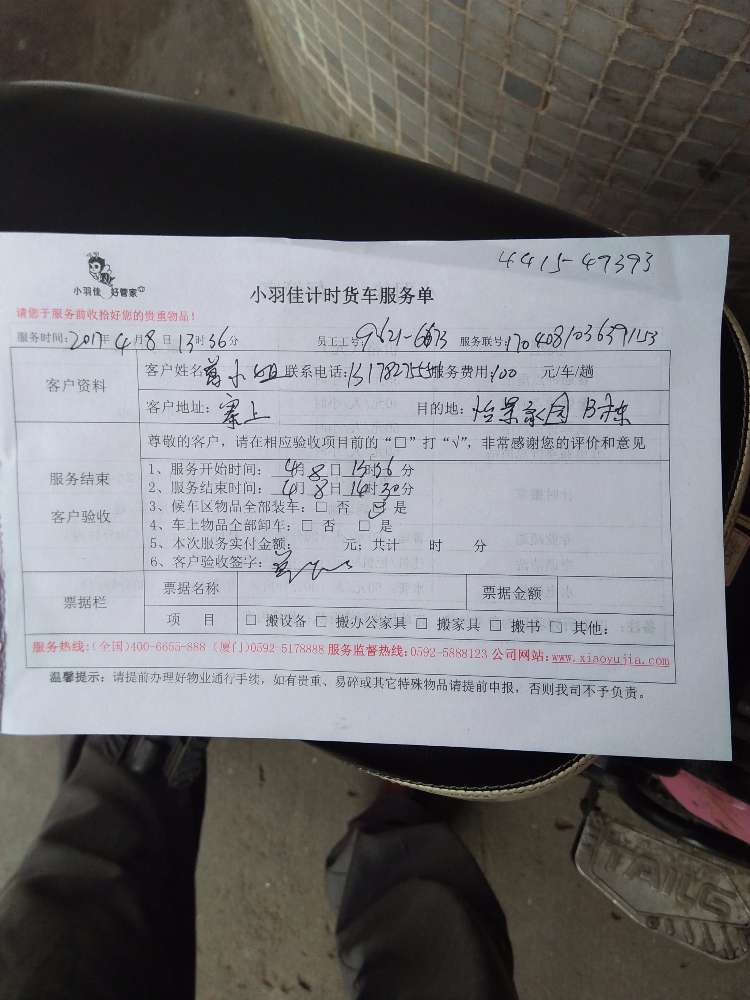 4415-49393
小羽佳 好管家
小羽佳计时货车服务单
请您于服务前收拾好您的贵重物品！
服务时间：2017年4月8日13时36分 员工工号：9621-6673 服务联号：
客户资料
客户姓名 小姐 联系电话： 服务费用：100 元/车/趟
客户地址：寨上 目的地：怡景家园 B栋
服务结束
客户验收
尊敬的客户，请在相应验收项目前的“□”打“√”，非常感谢您的评价和意见
1、服务开始时间：4月8日13时36分
2、服务结束时间：4月8日14时30分
3、候车区物品全部装车：□ 否 □ 是
4、车上物品全部卸车：□ 否 □ 是
5、本次服务实付金额： 元；共计 时 分
6、客户验收签字：
票据栏
票据名称 票据金额
项 目 □ 搬设备 □ 搬办公家具 □ 搬家具 □ 搬书 □ 其他：
服务热线：（全国）400-6655-888（厦门）0592-5178888 服务监督热线：0592-5888123 公司网站：www.xiaoyujia.com
温馨提示：请提前办理好物业通行手续，如有贵重、易碎或其它特殊物品请提前申报，否则我司不予负责。
TAILG